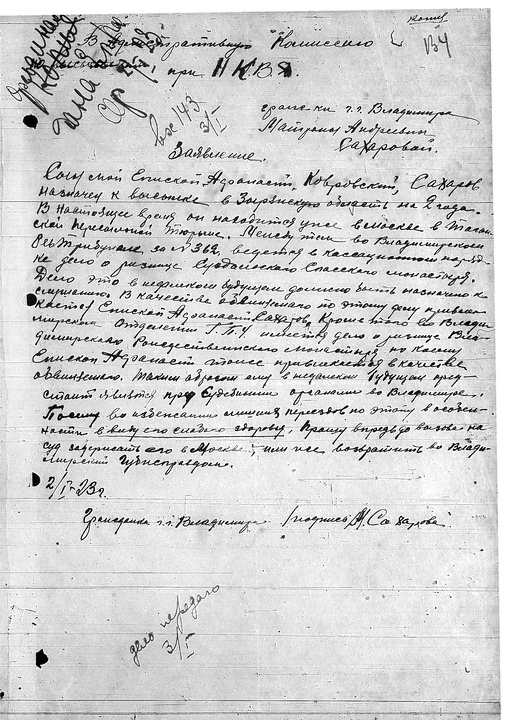 Копия
В4
В Административную Комиссию
при НКВД.
вх 143
3/I
гражданки г. Владимира
Матроны Андреевны
Сахаровой.
Заявление.
Сын мой Епископ Афанасий, Ковровский, Сахаров
назначен к высылке в Зырянскую область на 2 года.
В настоящее время он находится уже в Москве в Таган-
ской пересыльной тюрьме. Между тем во Владимирском
РевТрибунале, за № 362, ведется в кассационном поряд-
ке дело о ризнице Суздальского Спасского монастыря.
Дело это в недалеком будущем должно быть назначено к
слушанию. В качестве обвиняемого по этому делу привлек
кается Епископ Афанасий Сахаров, Кроме того во Влади-
мирском Отделении ГПУ имеется дело о ризнице Вла-
димирского Рождественского монастыря, по коему
Епископ Афанасий тоже привлекается в качестве
обвиняемого. Таким образом ему в недалеком будущем пред-
стоит явиться пред Судебными органами во Владимире.
Посему во избежание лишних переездов по этапу в особен-
ности в виду его слабого здоровья, Прошу впредь до вызова на
суд задержать его в Москве, или же, возвратить во Влади-
мирский Губисправдом.
2/I-23г.
Гражданка г. Владимира /подпись/ М. Сахарова
дело передано
3/I